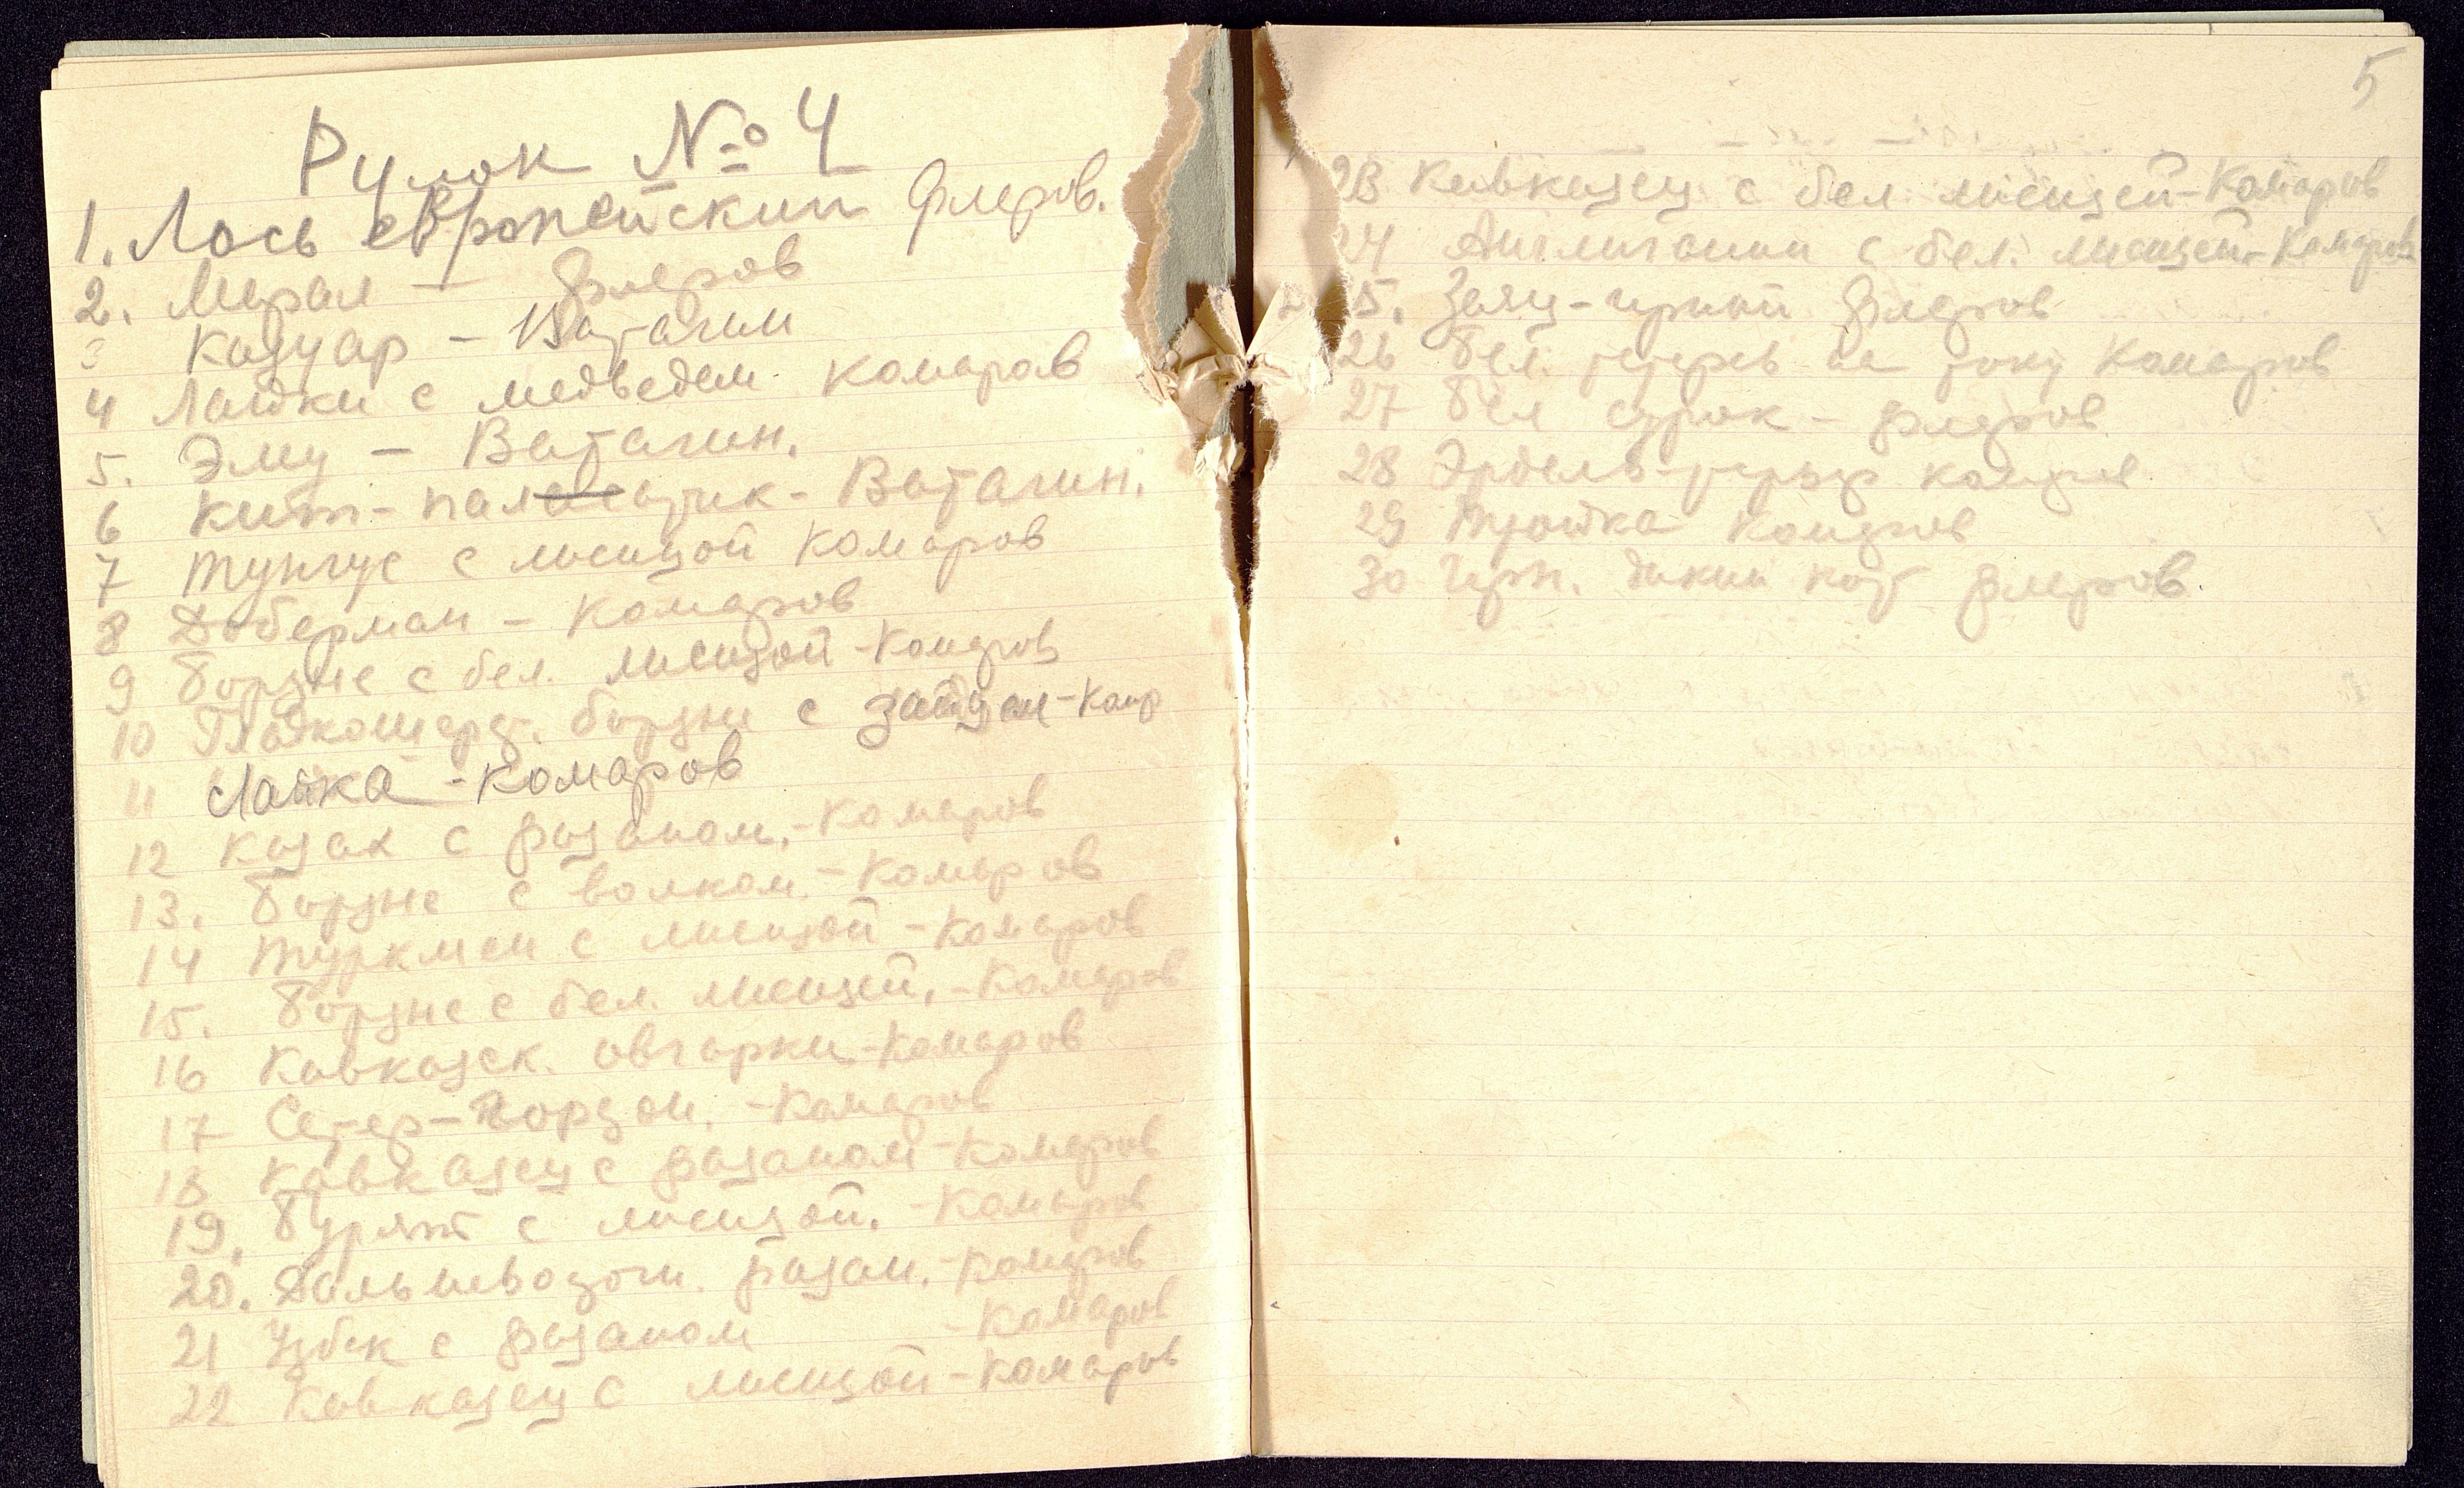 Рулон № 4
1. Лось европейский Флеров.
2. Марал — Флеров
3 Казуар - Ватагин
4 Лайки с медведем Комаров
5. Эму - Ватагин.
6 Кит-полосатик - Ватагин.
7 Тунгус с лисицой Комаров
8 Доберман - Комаров
9 Борзые с бел. лисицой - Комаров
10 Гладкошерст. борзые с зайцем - Комр
11 Лайка - Комаров
12 Казак с фазаном. - Комаров
13. Борзые с волком. - Комаров
14 Туркмен с лисицой - Комаров
15. Борзые с бел. лисицей. - Комаров
16 Кавказск. овчарки - Комаров
17 Сетер-гордон. - Комаров
18 Кавказец с фазаном - Комаров
19. Бурят с лисицой. - Комаров
20. Дальневосточн. фазан. - Комаров
21 Узбек с фазаном - Комаров
22 Кавказец с лисицой - Комаров
5
23 Кавказец с бел. лисицей - Комаров
24 Англичанин с бел. лисицей - Комаров
25. Заяц-черный Флеров
26 Бел. тетерев на току Комаров
27 Бел сурок - Флеров
28 Эрдель-терьер Комаров
29 Тройка Комаров
30 Черн. дикий кот Флеров.